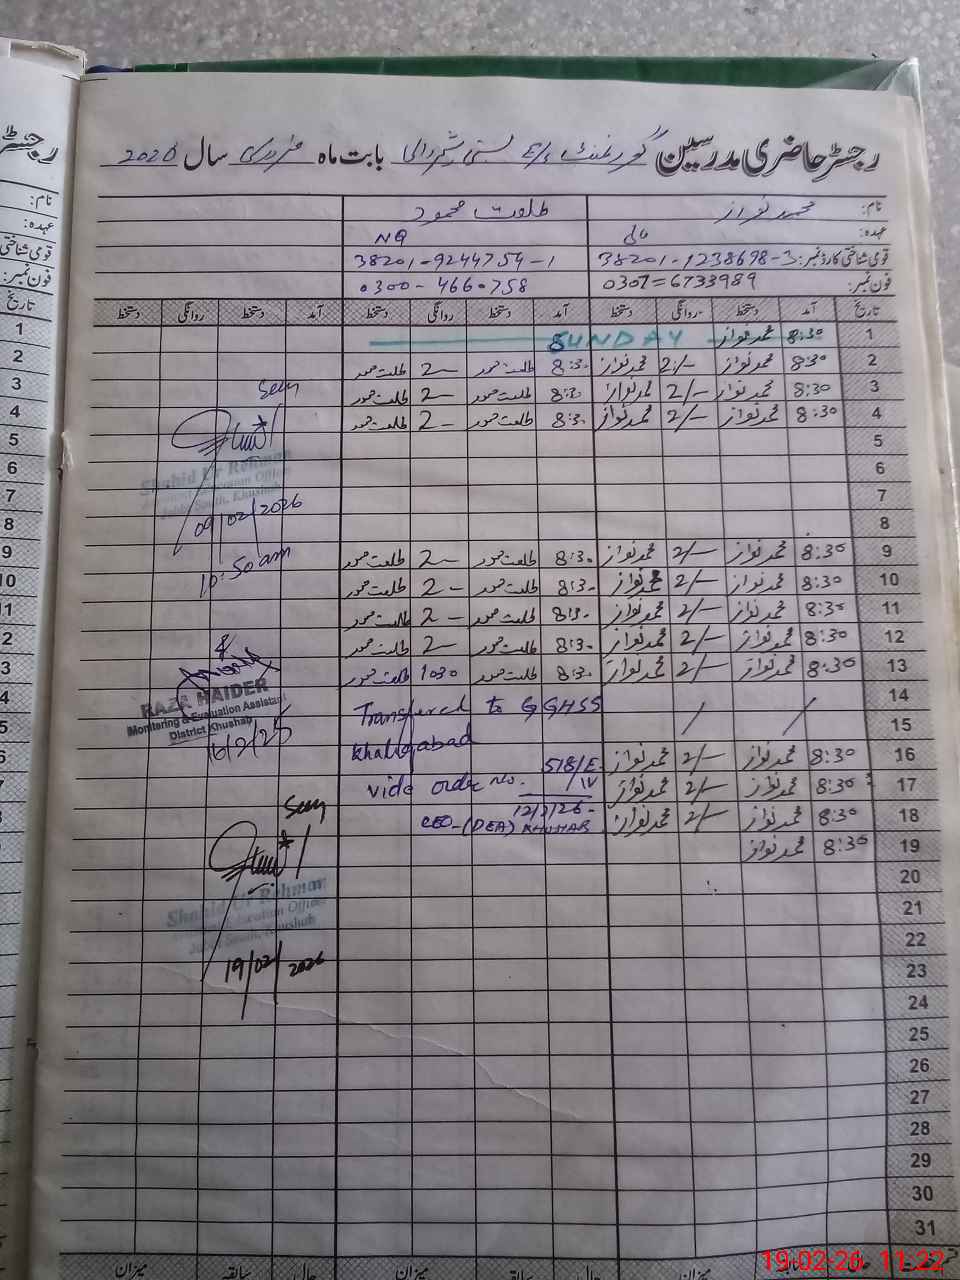 رجسٹر حاضری مدرسین گورنمنٹ E/S بستی بابت ماہ فروری سال 2026
نام: محمد نواز طلعت محمود
عہدہ: NQ
قومی شناختی کارڈ نمبر: 38201-1238698-3 38201-9244754-1
فون نمبر: 0307=6733989 0300-4660758
تاریخ آمد دستخط روانگی دستخط آمد دستخط روانگی دستخط آمد دستخط روانگی دستخط
1 8:30 محمد نواز SUNDAY
2 8:30 محمد نواز 2/- محمد نواز 8:30 طلعت محمود 2- طلعت محمود
3 8:30 محمد نواز 2/- محمد نواز 8:30 طلعت محمود 2- طلعت محمود
Seen
4 8:30 محمد نواز 2/- محمد نواز 8:30 طلعت محمود 2- طلعت محمود
5
6
Shahid Ur Rehman
Assistant Education Officer
7
Jabbi South, Khushab
8
09/02/2026
9 8:30 محمد نواز 2/- محمد نواز 8:30 طلعت محمود 2- طلعت محمود
10:50 am
10 8:30 محمد نواز 2/- محمد نواز 8:30 طلعت محمود 2- طلعت محمود
11 8:30 محمد نواز 2/- محمد نواز 8:30 طلعت محمود 2- طلعت محمود
12 8:30 محمد نواز 2/- محمد نواز 8:30 طلعت محمود 2- طلعت محمود
13 8:30 محمد نواز 2/- محمد نواز 8:30 طلعت محمود 1030 طلعت محمود
RAZA HAIDER
Monitoring & Evaluation Assistant
District Khushab
16/2/25
14
Transfered to GGHSS
15 / /
khaliqabad
16 8:30 محمد نواز 2/- محمد نواز
518/E-
17 8:30 محمد نواز 2/- محمد نواز
vide order No. /IV
12/2/26-
18 8:30 محمد نواز 2/- محمد نواز
CEO-(DEA) KHUHAB
Seen
19 8:30 محمد نواز
20
Shahid Ur Rehman
Assistant Education Officer
21
Jabbi South, Khushab
22
19/02/2026
23
24
25
26
27
28
29
30
31
میزان حال سابقہ میزان حال سابقہ میزان
19-02-26 11:22
رجسٹر
نام:
عہدہ:
قومی شناختی
فون نمبر:
تاریخ
1
2
3
4
5
6
7
8
9
10
11
2
3
4
5
6
7
8
9